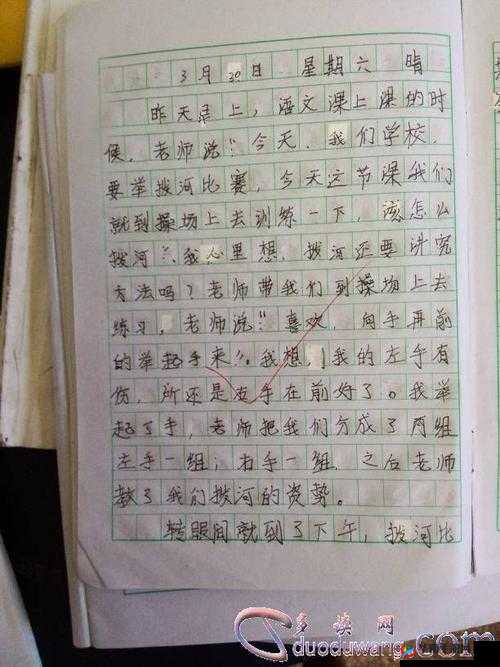 3月30日 星期六 晴
昨天早上，语文课上课的时
候，老师说："今天，我们学校，
要举拔河比赛，今天这节课我们
就到操场上去训练一下，该怎么
拔河。"我心里想，拔河还要讲究
方法吗？老师带我们到操场上去
练习，老师说："喜欢，用手再前
的举起手来"。我想，我的左手有
伤，所还是右手在前好了。我举
起了手，老师把我们分成了两组
左手一组；右手一组，之后老师
教了我们拔河的资势。
转眼间就到了下午，拔河比
多读网
duoduwang.com